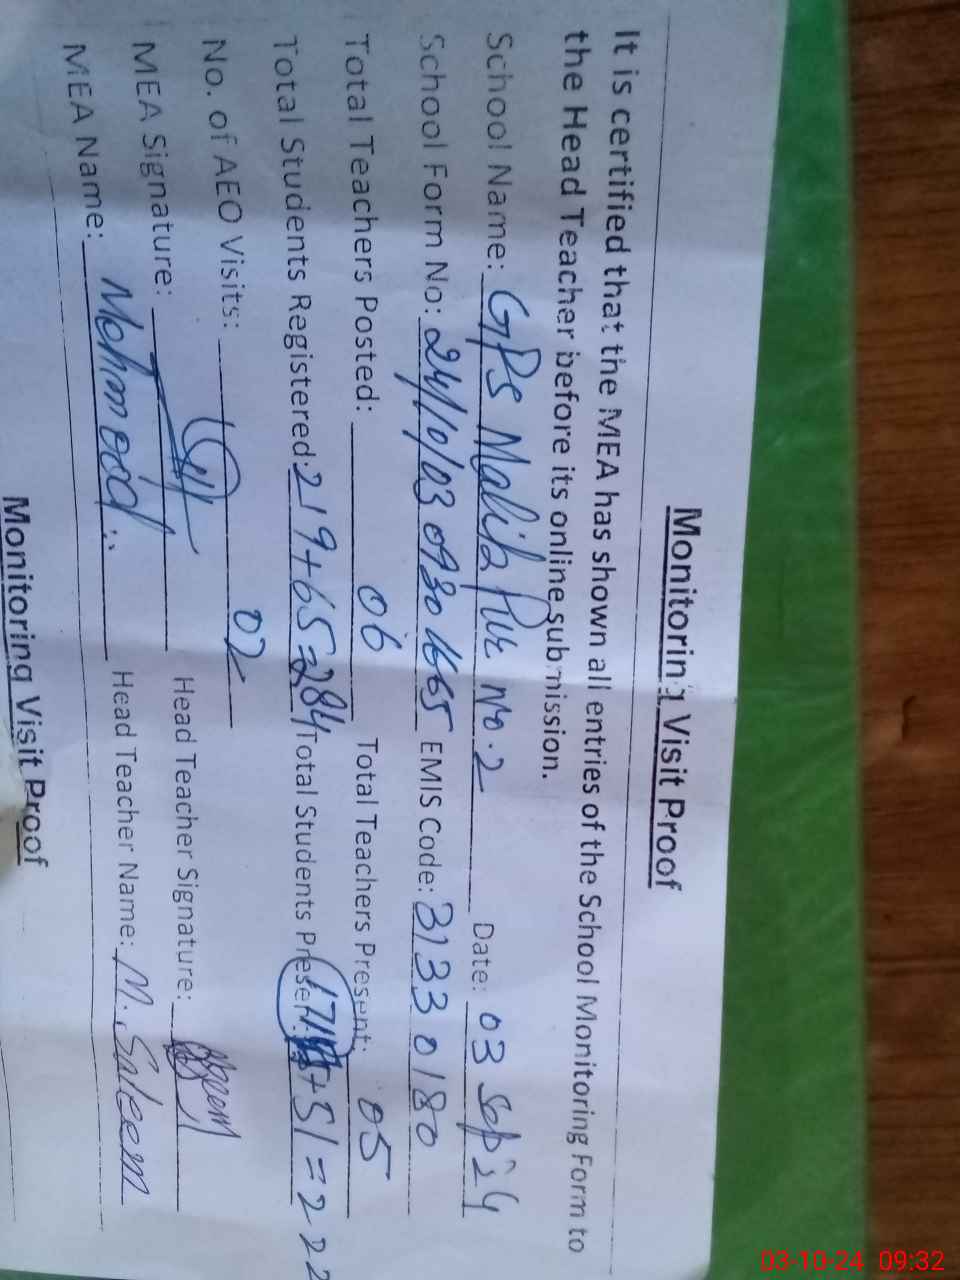 Monitoring Visit Proof
It is certified that the MEA has shown all entries of the School Monitoring Form to
the Head Teacher before its online submission.
School Name: GPS Malik Pur No. 2 Date: 03 Sep 24
School Form No: EMIS Code: 31330180
Total Teachers Posted: 06 Total Teachers Present: 05
Total Students Registered: 219+65=284 Total Students Present: 171+51=222
No. of AEO Visits: 02
MEA Signature: Head Teacher Signature:
MEA Name: Mehmood Head Teacher Name: M. Saleem
Monitoring Visit Proof
03-10-24 09:32